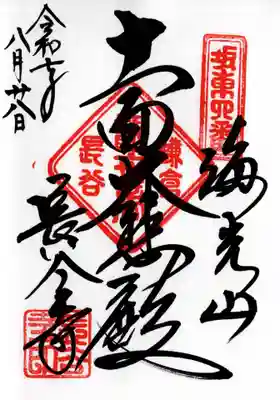 坂東四番
海光山
十一面大悲殿
鎌倉
長谷
長谷寺
令和七年
八月廿八日